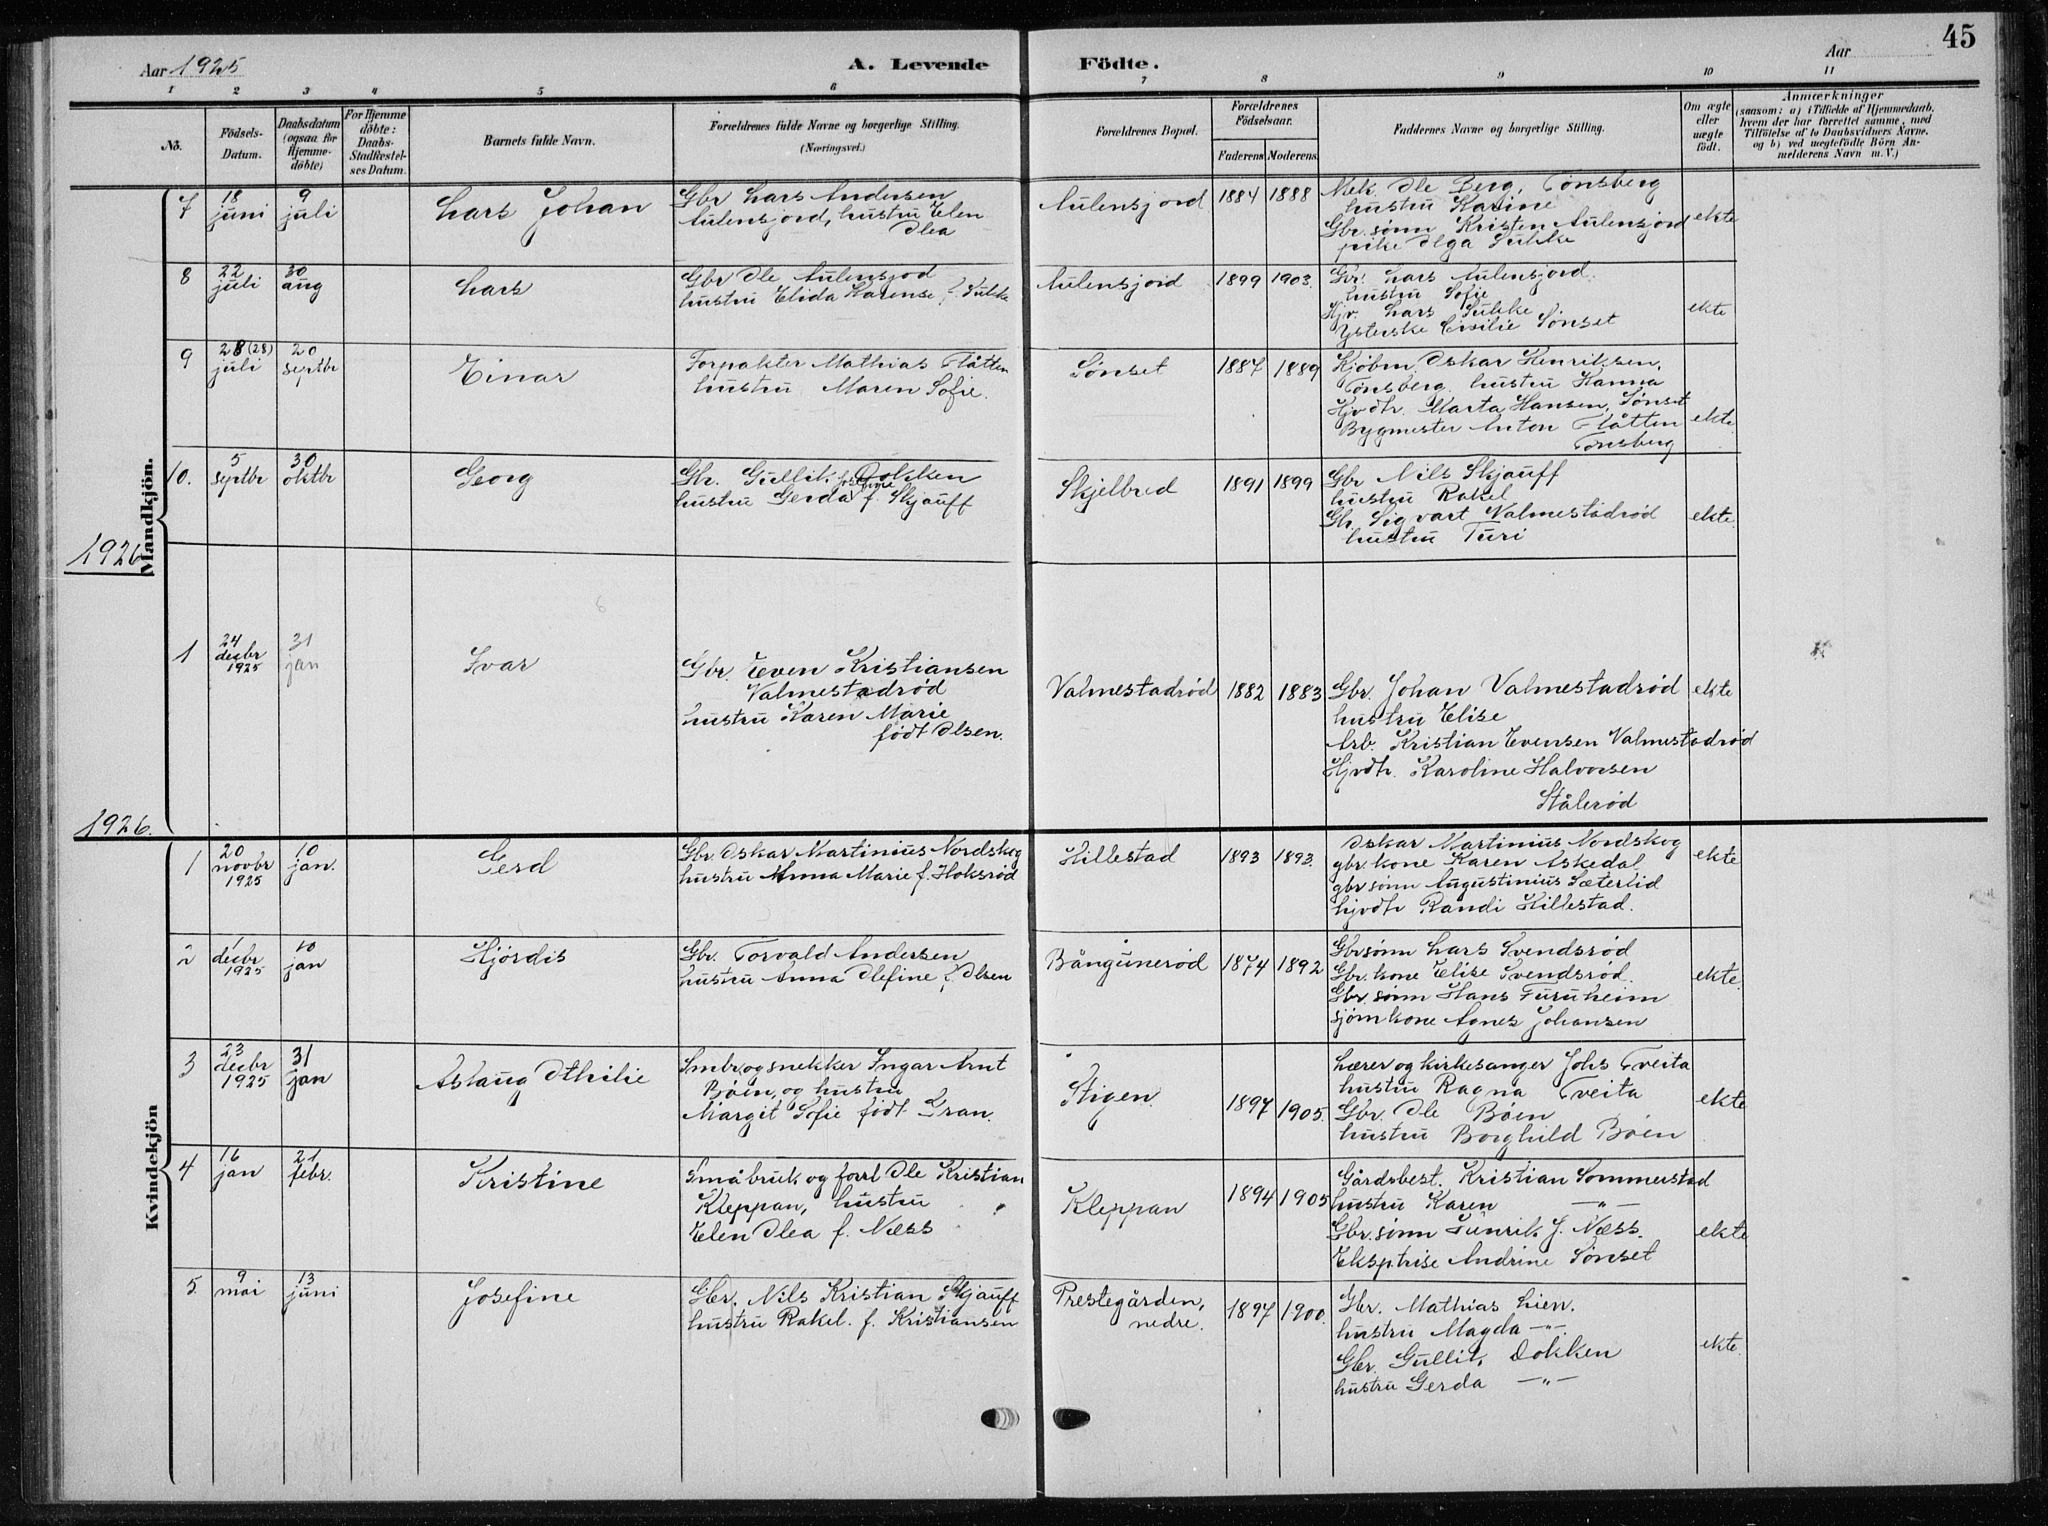 45
Aar 1925
A. Levende Födte.
Aar
1 2 3 4 5 6 7 8 9 10 11
No.
Födsels-Datum.
Daabsdatum (ogsaa for Hjemmedöbte)
For Hjemmedöbte: Daabs-Stadfæstelses Datum.
Barnets fulde Navn.
Forældrenes fulde Navne og borgerlige Stilling.
(Næringsvei.)
Forældrenes Bopæl.
Forældrenes Födselsaar.
Faderens Moderens
Faddernes Navne og borgerlige Stilling.
Om ægte eller uægte födt.
Anmærkninger
(saasom: a) i Tilfælde af Hjemmedaab, hvem der har forrettet samme, med Tilföielse af to Daabsvidners Navne. og b) ved uægtefödte Börn Anmelderens Navn m. V.)
Mandkjön.
7 18 juni 9 juli Lars Johan
Gbr Lars Andersen
Aulensjord, hustru Elen
Olea
Aulensjord 1884 1888
Mek. Ole Berg, Tønsberg
hustru Karine
Gbr. sønn Kristen Aulensjord
pike Olga Sukke
ekte
8 22 juli 30 aug Lars
Gbr Ole Aulensjod
hustru Elida Karense f. Sukke
Aulensjord 1899 1903.
Gbr. Lars Aulensjord.
hustru Sofie
Hjv. Lars Sukke
Ysterske Cisilie Sønset
ekte
9 28 (28) juli 20 septbr Einar
Forpakter Mathias Flåtten
hustru Maren Sofie.
Sønset 1887 1889
Kjøbm. Oskar Henriksen,
Tønsberg. hustru Hanna
Hjvdtr. Marta Hansen, Sønset
Bygmester Anton Flåtten
Tønsberg
ekte
10. 5 septbr 30 oktbr Georg
Gbr. Gullik Dokken
hustru Gerda f. Skjauff
Skjelbred 1891 1899
Gbr Nils Skjauff
hustru Rakel
Gbr. Sigvart Valmestadrød
hustru Turi
ekte
1926
1 24 desbr 1925 31 jan Ivar
Gbr. Even Kristiansen
Valmestadrød
hustru Karen Marie
født Olsen.
Valmestadrød 1882 1883
Gbr. Johan Valmestadrød
hustru Elise
Arb. Kristian Evensen Valmestadrød
Hjvdtr. Karoline Halvorsen
Stålerød
ekte
1926.
Kvindekjön
1 20 novbr 1925 10 jan. Gerd
Gbr. Oskar Martinius Nordskog
hustru Anna Marie f. Hoksrød
Hillestad 1893 1893.
Oskar Martinius Nordskog
gbr. kone Karen Askedal
gbr sønn Augustinius Sæterlid
hjvdtr Randi Hillestad.
ekte
2 1 desbr 1925 10 jan Hjördis
Gbr. Torvald Andersen
hustru Anna Olefine f. Olsen
Bångunerød 1874 1892
Gbr sønn Lars Svendsrød
Gbr. kone Elise Svendsrød.
Gbr. sønn Hans Furuheim
sjøm kone Agnes Johansen
ekte.
3 23 desbr 1925 31 jan Aslaug Othilie
Smbr. og snekker Ingar Arnt
Bøen, og hustru
Margit Sofie født Gran.
Stigen. 1897 1905.
Lærer og kirkesanger Johs Tveita
hustru Ragna Tveita
Gbr. Ole Bøen
hustru Borghild Bøen
ekte
4 16 jan 21 febr. Kristine
Småbruk og forrt Ole Kristian
Kleppan, hustru
Elen Olea f. Næss
Kleppan 1894 1905
Gårdsbest. Kristian Sommerstad
hustru Karen — " —
Gbr. sønn Henrik J. Næss.
Eksptrise Andrine Sønset
ekte
5. 9 mai 13 juni Josefine
Gbr. Nils Kristian Skjauff
hustru Rakel. f. Kristiansen
Prestegården, nedre. 1897 1900.
Gbr. Mathias Lien.
hustru Magda — " —
Gbr. Gullik Dokken
hustru Gerda — " —
ekte.